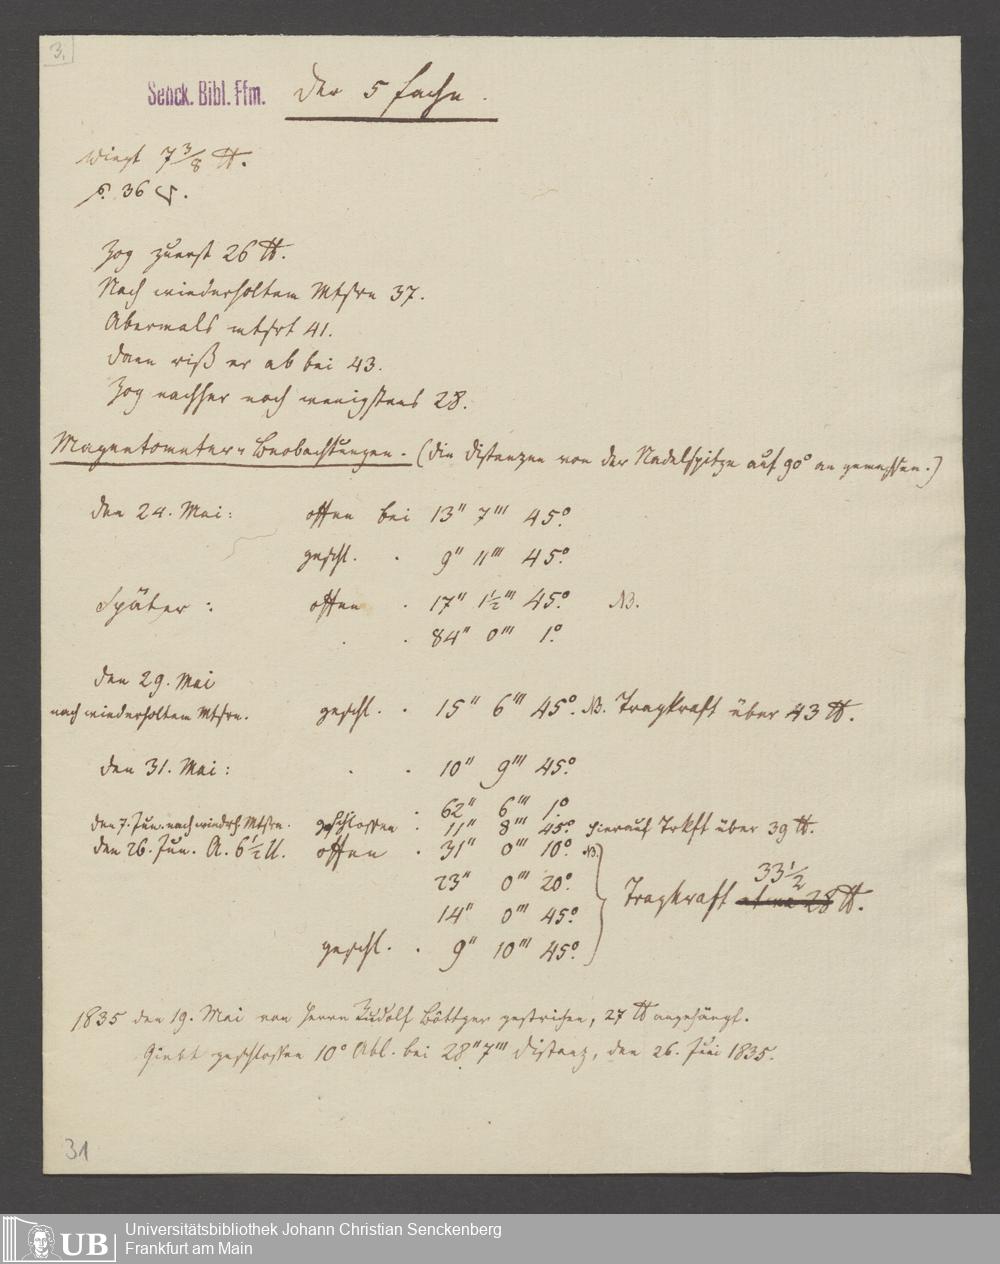 3.
Senck. Bibl. Ffm.
Der 5 fache.
wiegt 7 3/8 ℔.
p. 36
Zog zuerst 26 ℔.
Nach wiederholtem Mtsrn 37.
Abermals mtsrt 41.
dann riß er ab bei 43.
Zog nachher noch wenigstens 28.
Magnetometer-Beobachtungen. (die Distanzen von der Nadelspitze auf 90° an gemessen.)
den 24. Mai: offen bei 13" 7''' 45°.
geschl. . 9" 11''' 45°.
Später: offen . 17" 1½''' 45°. NB.
. . 84" 0''' 1°.
den 29. Mai
nach wiederholtem Mtsrn. geschl. . 15" 6''' 45°. NB. Tragkraft über 43 ℔.
den 31. Mai: . . 10" 9''' 45°.
. 62" 6''' 1°.
den 7. Jun. nach wiedrh. Mtsrn. geschlossen . 11" 8''' 45°. hierauf Trkft über 39 ℔.
den 26. Jun. A. 6½ U. offen . 31" 0''' 10°. NB.
23" 0''' 20°.
33½
14" 0''' 45°. Tragkraft etwa 28 ℔.
geschl. . 9" 10''' 45°.
1835 den 19. Mai von Herrn Rudolf Böttger gestrichen, 27 ℔ angehängt.
Giebt geschlossen 10° Abl. bei 28" 7''' Distanz, den 26. Juni 1835.
31
UB
Universitätsbibliothek Johann Christian Senckenberg
Frankfurt am Main